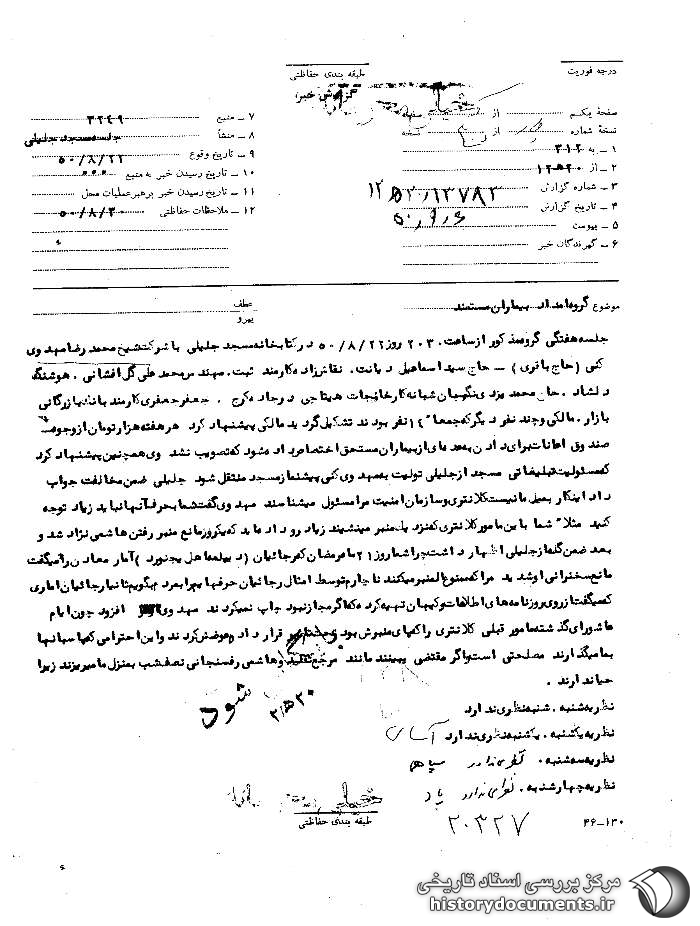 درجه فوریت
طبقه بندی حفاظتی
گزارش خبر
صفحهٔ یکم از صفحه
نسخهٔ شماره از نسخه
۱ - به ۳۱۲
۲ - از ۲۰ ه ۱۲
۳ - شماره گزارش ۱۲
۴ - تاریخ گزارش ۵۰/۹/۶
۵ - پیوست
۶ - گیرندگان خبر
۷ - منبع ۳۲۴۹
۸ - منشأ جلسه مسجد جلیلی
۹ - تاریخ وقوع ۵۰/۸/۲۲
۱۰ - تاریخ رسیدن خبر به منبع ۰۰۰
۱۱ - تاریخ رسیدن خبر برهبر عملیات محل
۱۲ - ملاحظات حفاظتی ۵۰/۸/۳۰
موضوع گروه امداد بیماران مستمند
عطف
پیرو
جلسه هفتگی گروه مذکور از ساعت ۲۰۳۰ روز ۵۰/۸/۲۲ در کتابخانه مسجد جلیلی با شرکت شیخ محمد رضا مهدوی
کنی (حاج باقری) - حاج سید اسماعیل دیانت، نقاش زاده کارمند ثبت، مهندس محمد علی گل افشانی، هوشنگ
دلشاد، حاج محمد یزدی نگهبان شبانه کارخانجات هیتاچی در جاده کرج، جعفر جعفری کارمند بانک بازرگانی
بازار، مالکی و چند نفر دیگر که جمعا" ۱۴ نفر بودند تشکیل گردید مالکی پیشنهاد کرد هر هفته هزار تومان از وجوه
صندوق اعانات برای دادن به عده ای از بیماران مستحق اختصاص داده شود که تصویب نشد وی همچنین پیشنهاد کرد
که مسئولیت تبلیغاتی مسجد از جلیلی تولیت به مهدوی کنی پیشنماز مسجد منتقل شود جلیلی ضمن مخالفت جواب
داد اینکار بمیل ما نیست کلانتری و سازمان امنیت مرا مسئول میشناسند مهدوی گفت شما بحرف آنها نباید زیاد توجه
کنید مثلا" شما با این مامور کلانتری که نزدیک منبر مینشیند زیاد رو داده اید که یکروز مانع منبر رفتن هاشمی نژاد شد و
بعد ضمن گله از جلیلی اظهار داشت چرا شما روز ۲۱ ماه رمضان که رجائیان ( دبیله ماهل بجنورد ) آمار معادن را میگفت
مانع سخنرانی او شدید مرا که ممنوع المنبر میکنند ناچارم توسط امثال رجائیان حرفهایم را بمردم بگویم ثانیا رجائیان اماری
که میگفت از روی روزنامه های اطلاعات و کیهان تهیه کرده که اگر مجاز نبود چاپ نمیکردند مهدوی افزود چون ایام
عاشورای گذشته مامور قبلی کلانتری را که پای منبرش بود قرار داده عوض کردند و این احترامی که پاسبانها
بما میگذارند مصلحتی است و اگر مقتضی ببینند مانند مرجع تقلید و هاشمی رفسنجانی نصف شب بمنزل ما میریزند زیرا
حیا ندارند.
نظریه شنبه. شنبه نظری ندارد
نظریه یکشنبه. یکشنبه نظری ندارد آسای
نظریه سه شنبه. نظری ندارد سپاهی
نظریه چهارشنبه. نظری ندارد پاد
۲۰ ه ۳ شود
۲۰۳۲۷
طبقه بندی حفاظتی
۴۶-۱۳۰
مرکز بررسی اسناد تاریخی
historydocuments.ir